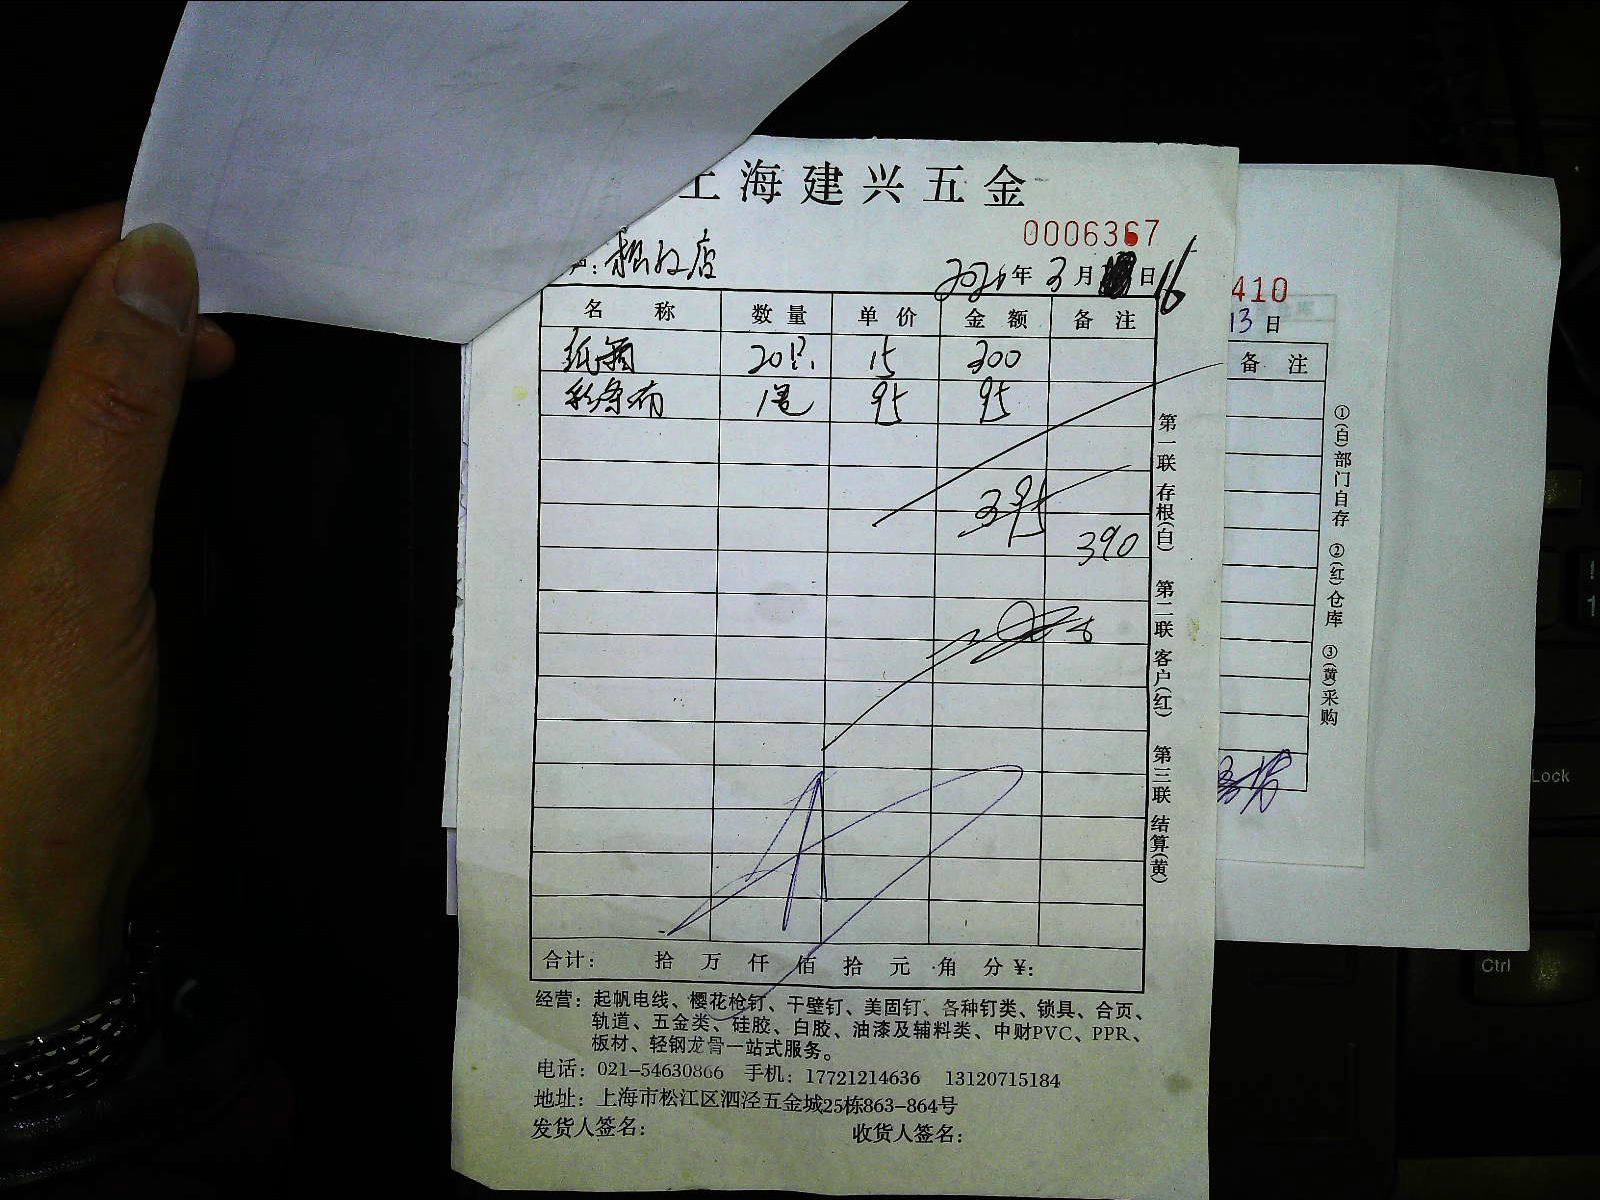 上海建兴五金
0006367
店
年 3 月 日 16
名 称 数 量 单 价 金 额 备 注
纸箱 20只 15 300
彩条布 1卷 95 95
395
390
合计: 拾 万 仟 佰 拾 元 角 分 ¥:
经营: 起帆电线、樱花枪钉、干壁钉、美固钉、各种钉类、锁具、合页、
轨道、五金类、硅胶、白胶、油漆及辅料类、中财PVC、PPR、
板材、轻钢龙骨一站式服务。
电话: 021-54630866 手机: 17721214636 13120715184
地址: 上海市松江区泗泾五金城25栋863-864号
发货人签名: 收货人签名:
第一联 存根(白) 第二联 客户(红) 第三联 结算(黄)
410
13 日
备 注
①(白)部门自存 ②(红)仓库 ③(黄)采购
Lock
Ctrl